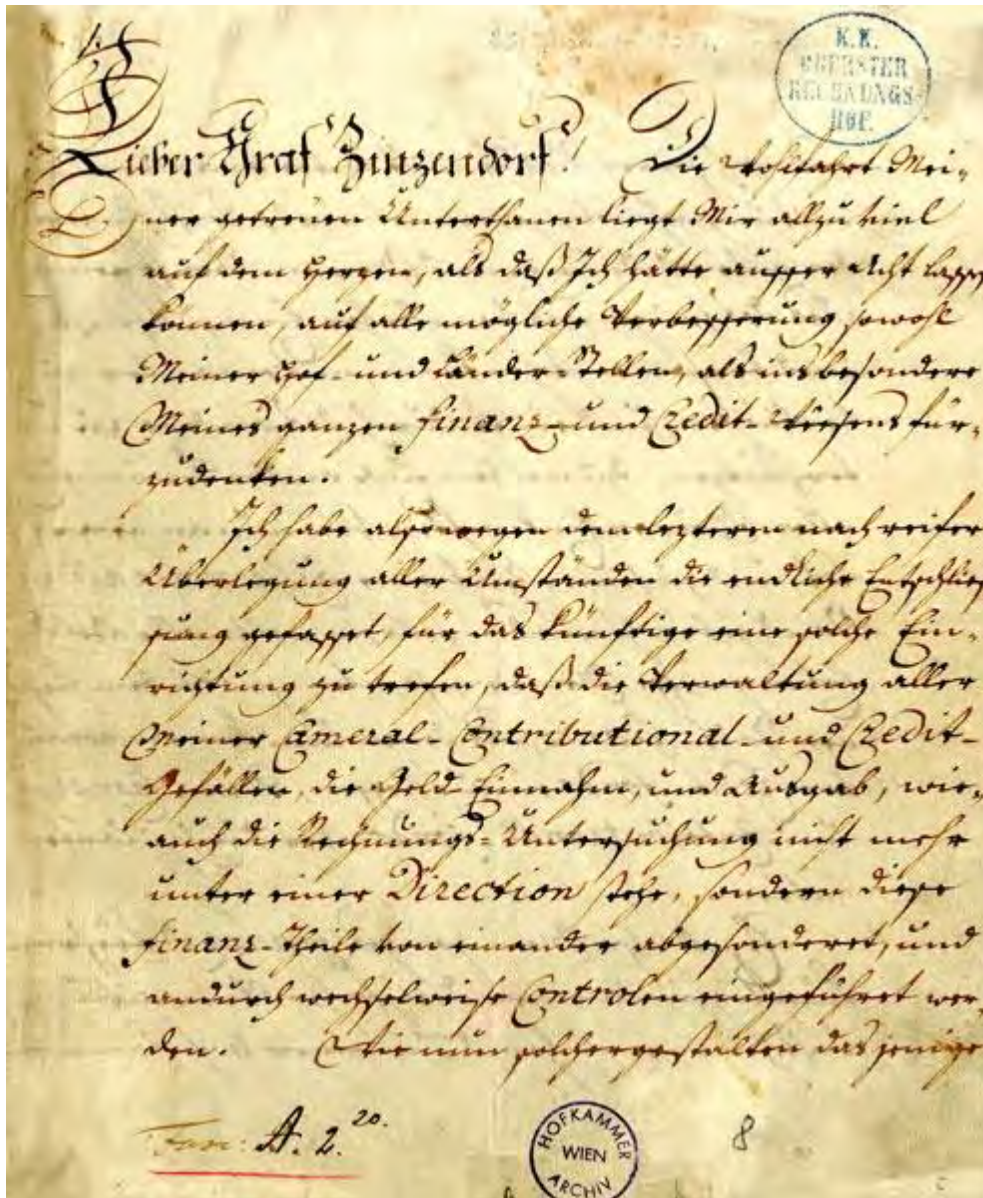 K.K.
OBERSTER
RECHNUNGS-
HOF.
Lieber Graf Zinzendorf! Die Wohlfahrt Mei-
ner getreuen Unterthanen liegt Mir allzu viel
auf dem Herzen, als daß Ich hätte ausser Acht lassen
können, auf alle mögliche Verbesserung sowohl
Meiner Hof- und Länder-Stellen, als insbesondere
Meines ganzen Finanz- und Credit-Weesens für-
zudenken.
Ich habe also wegen dem lezteren nach reifer
Überlegung aller Umständen die endliche Entschlies-
sung gefasset, für das künftige eine solche Ein-
richtung zu trefen, daß die Verwaltung aller
Meiner Cameral- Contributional- und Credit-
Gefällen, die Geld-Einnahm, und Ausgab, wie-
auch die Rechnungs-Untersuchung nicht mehr
unter einer Direction stehe, sondern diese
Finanz-Theile von einander abgesonderet, und
andurch wechselweise Controlen eingeführet wer-
den. Wie nun solchergestalten das jenige
A. 2.20.
8
HOFKAMMER
WIEN
ARCHIV